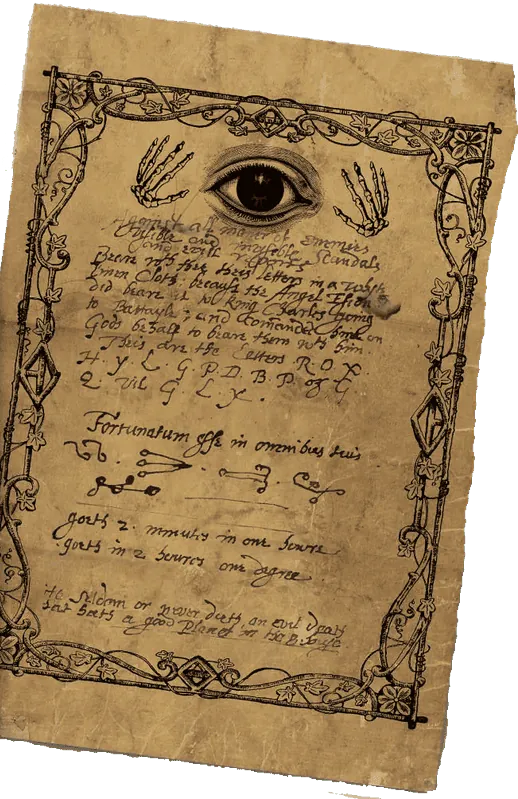 Against all maner of Emmies
visible and invisible Scandals
and evill reportes
Beare with thee theis letters in a white
linen Cloth, because the Angel
did beare it to king Charles going
to Battayle; and Comanded him on
Gods behalf to beare them with him.
Theis are the Letters R. O. X
H. Y. L. G. P. D. B. P. og G
Q. Vil G. L. X.
Fortunatum esse in omnibus tuis
goeth 2. minutes in one houre
goeth in 2 houres one degree
He seldom or never dieth an evil death
that hath a good Planet in the 8 house